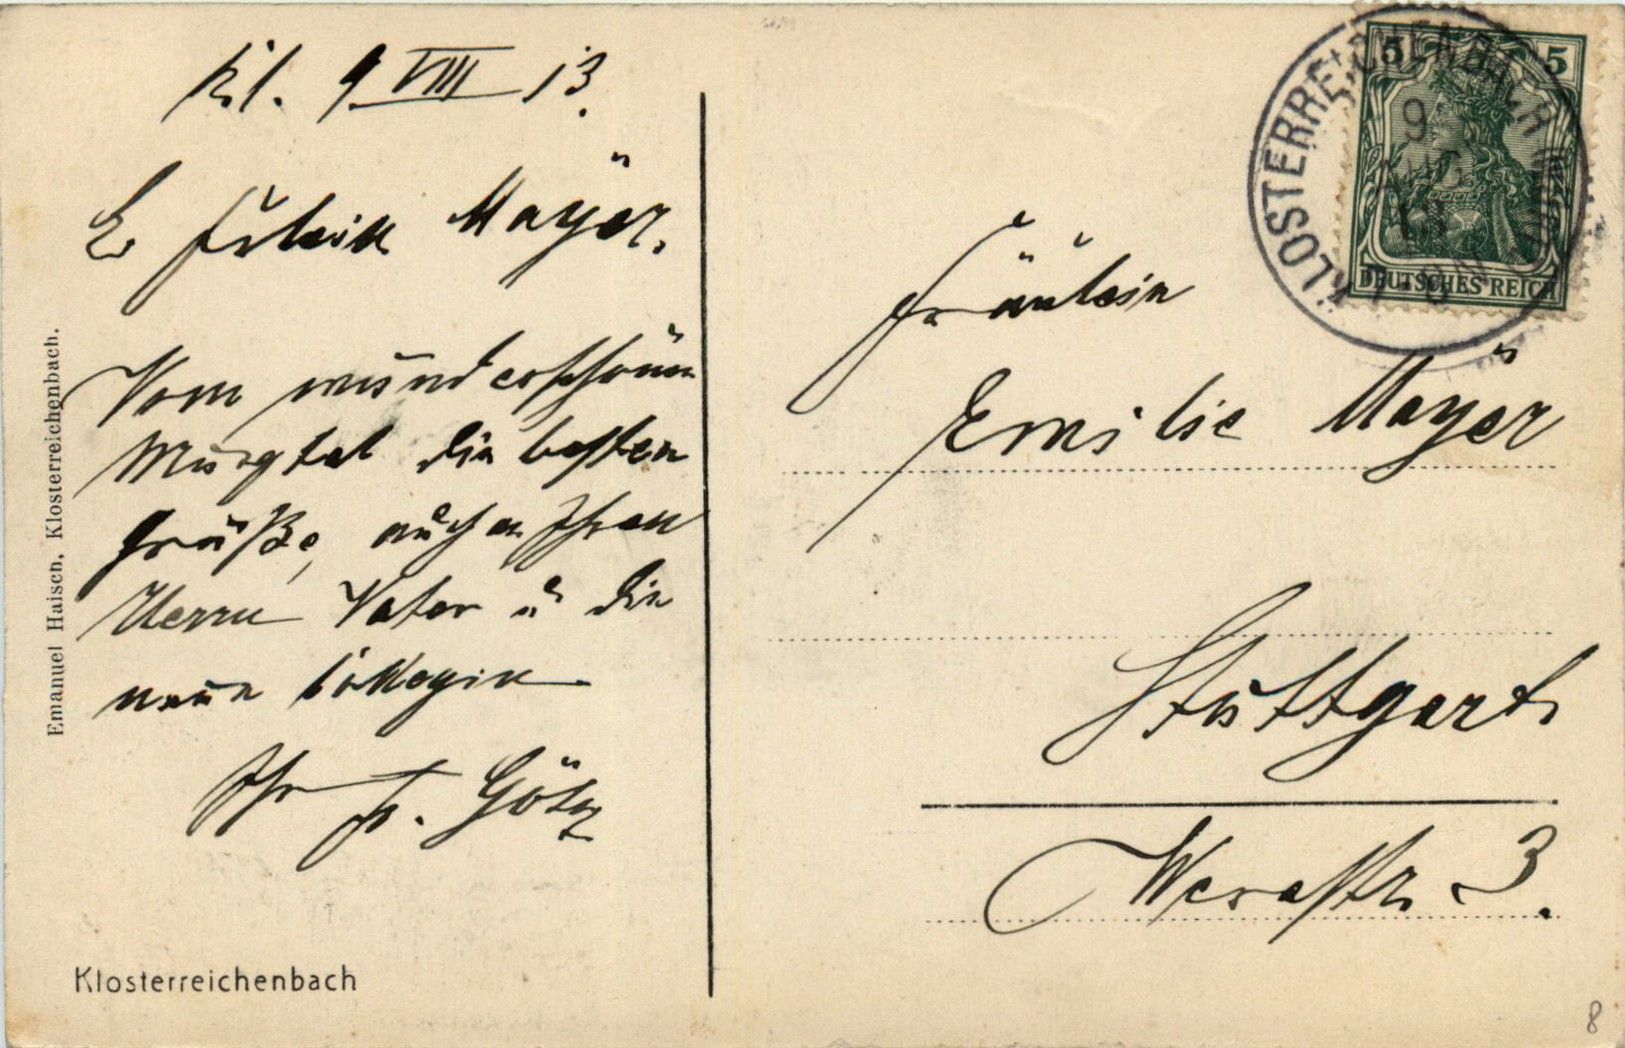 Kl. 9 VIII 13.
Fräulein Mayer.
Vom wunderschönen
Murgtal die besten
Grüße, auch an Ihren
Herrn Vater u die
neue
Ihr F. Götz
Emanuel Haisch, Klosterreichenbach.
Klosterreichenbach
5 5
DEUTSCHES REICH
KLOSTERREICHENBACH
9
13
Fräulein
Emilie Mayer
Stuttgart
Werastr. 3.
8